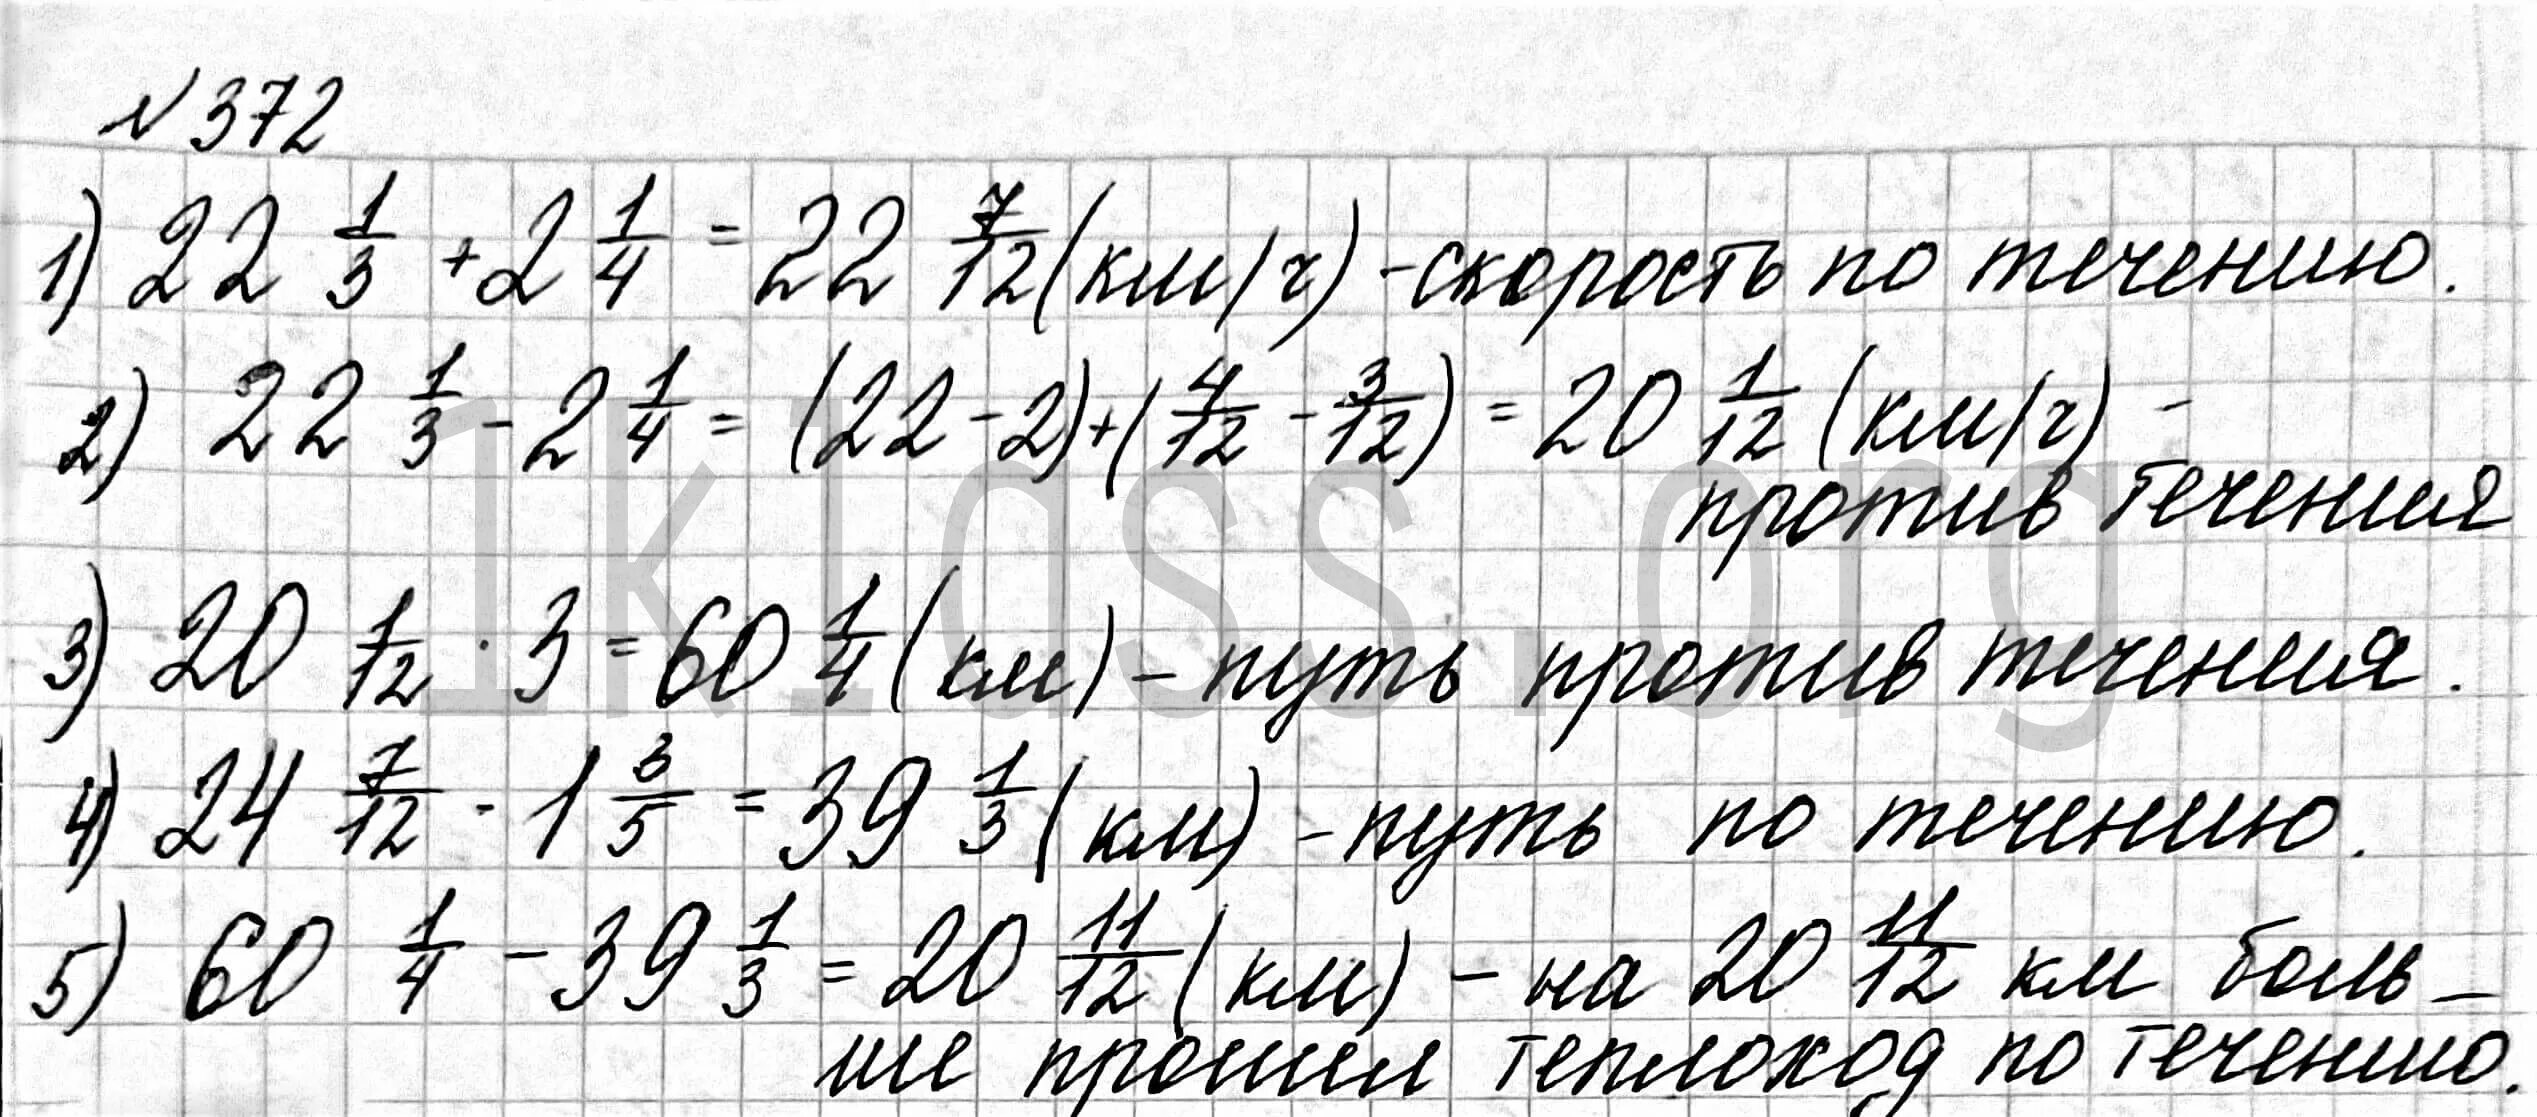 №372
1) 22 1/3 + 2 1/4 = 22 7/12 (км/ч) - скорость по течению.
2) 22 1/3 - 2 1/4 = (22 - 2) + (4/12 - 3/12) = 20 1/12 (км/ч) -
против течения
3) 20 1/12 · 3 = 60 1/4 (км) - путь против течения.
4) 24 7/12 · 1 3/5 = 39 1/3 (км) - путь по течению.
5) 60 1/4 - 39 1/3 = 20 11/12 (км) - на 20 11/12 км боль-
ше прошел теплоход по течению.
1klass.org